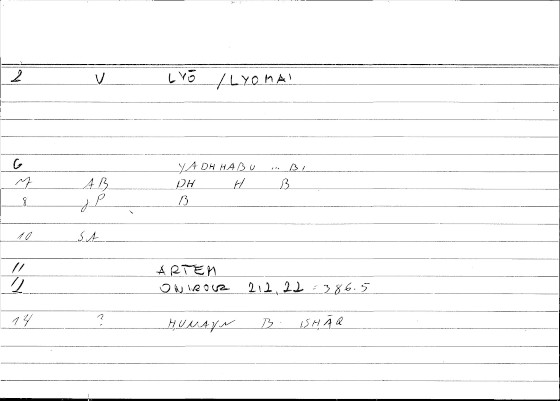 2 V LYŌ /LYOMAI
6 YADHHABU ... BI
7 AB DH H B
8 jP B
10 SA
11 ARTEM
12 ONIROCR 212, 22 = 386.5
14 ? HUNAYN B. ISHĀQ